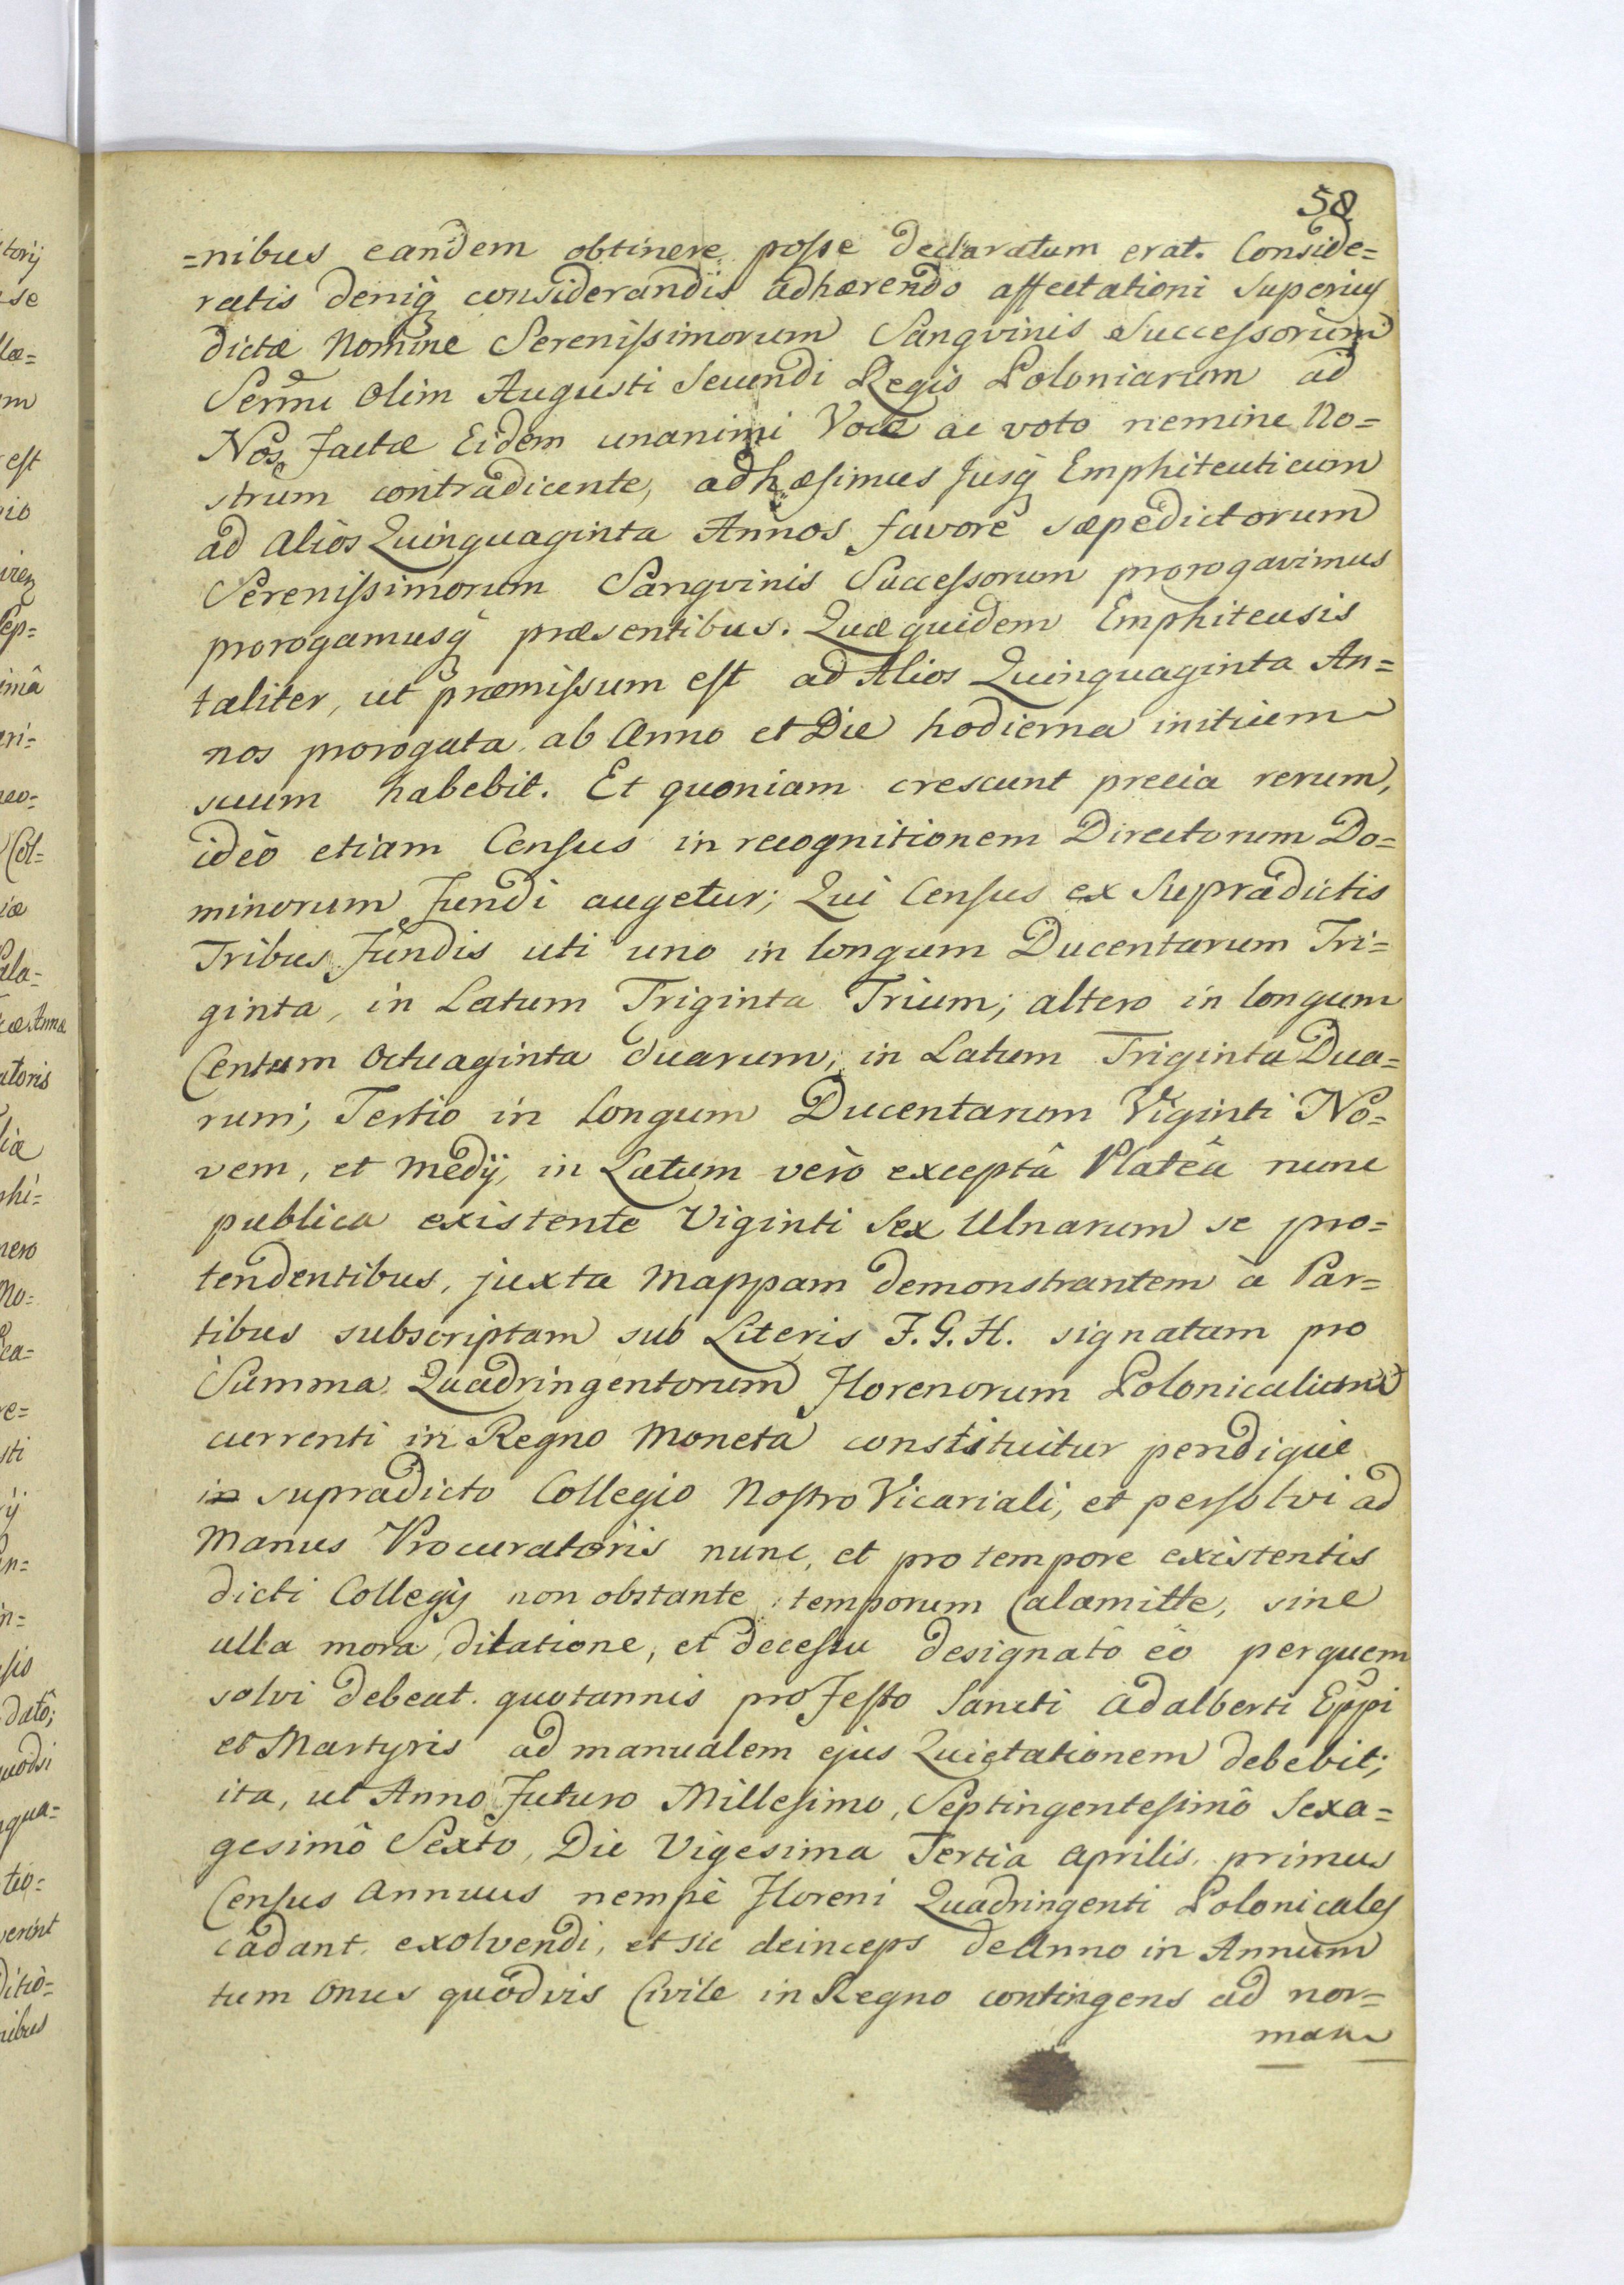 58
=nibus eandem obtinere posse declaratum erat. Conside=
ratis deniq́ considerandis adhærendo affectationi superius
dictæ Nomine Serenissimorum Sangvinis Successorum
Sermi Olim Augusti Secundi Regis Poloniarum ad
Nos factæ Eidem unanimi Voce ac voto nemine No=
strum contradicente, adhæsimus Jusq́ Emphiteuticum
ad Alios Quinquaginta Annos favore sæpedictorum
Serenissimorum Sangvinis Successorum prorogavimus
prorogamusq́ præsentibus. Quæ quidem Emphiteusis
taliter, ut præmissum est ad Alios Quinquaginta An=
nos prorogata ab Anno et Die hodierna initium
suum habebit. Et quoniam crescunt precia rerum,
ideò etiam Census in recognitionem Directorum Do=
minorum fundi augetur; Qui Census ex Supradictis
Tribus Fundis uti uno in longum Ducentarum Tri=
ginta, in Latum Triginta Trium; altero in longum
Centum Octuaginta duarum, in Latum Triginta Dua=
rum; Tertio in longum Ducentarum Viginti No=
vem, et medij, in Latum verò exceptâ Plateâ nunc
publica existente Viginti Sex Ulnarum se pro=
tendentibus, juxta Mappam demonstrantem à Par=
tibus subscriptam sub Literis F. G. H. signatam pro
Summa Quadringentorum Florenorum Polonicalium
currenti in Regno Moneta constituitur pendique
in supradicto Collegio Nostro Vicariali, et persolvi ad
Manus Procuratoris nunc, et pro tempore existentis
dicti Collegij non obstante temporum Calamitte, sine
ulla mora, dilatione, et decessu designatô eô per quem
solvi debeat. quotannis pro Festo Sancti Adalberti Eppi
et Martyris ad manualem ejus Quietationem debebit;
ita, ut Anno Futuro Millesimo, Septingentesimô Sexa=
gesimô Sexto, Die Vigesima Tertia Aprilis, primus
Census Annuus nempè Floreni Quadringenti Polonicales
cadant exolvendi, et sic deinceps de Anno in Annum
tum Onus quodvis Civile in Regno contingens ad nor=
mam